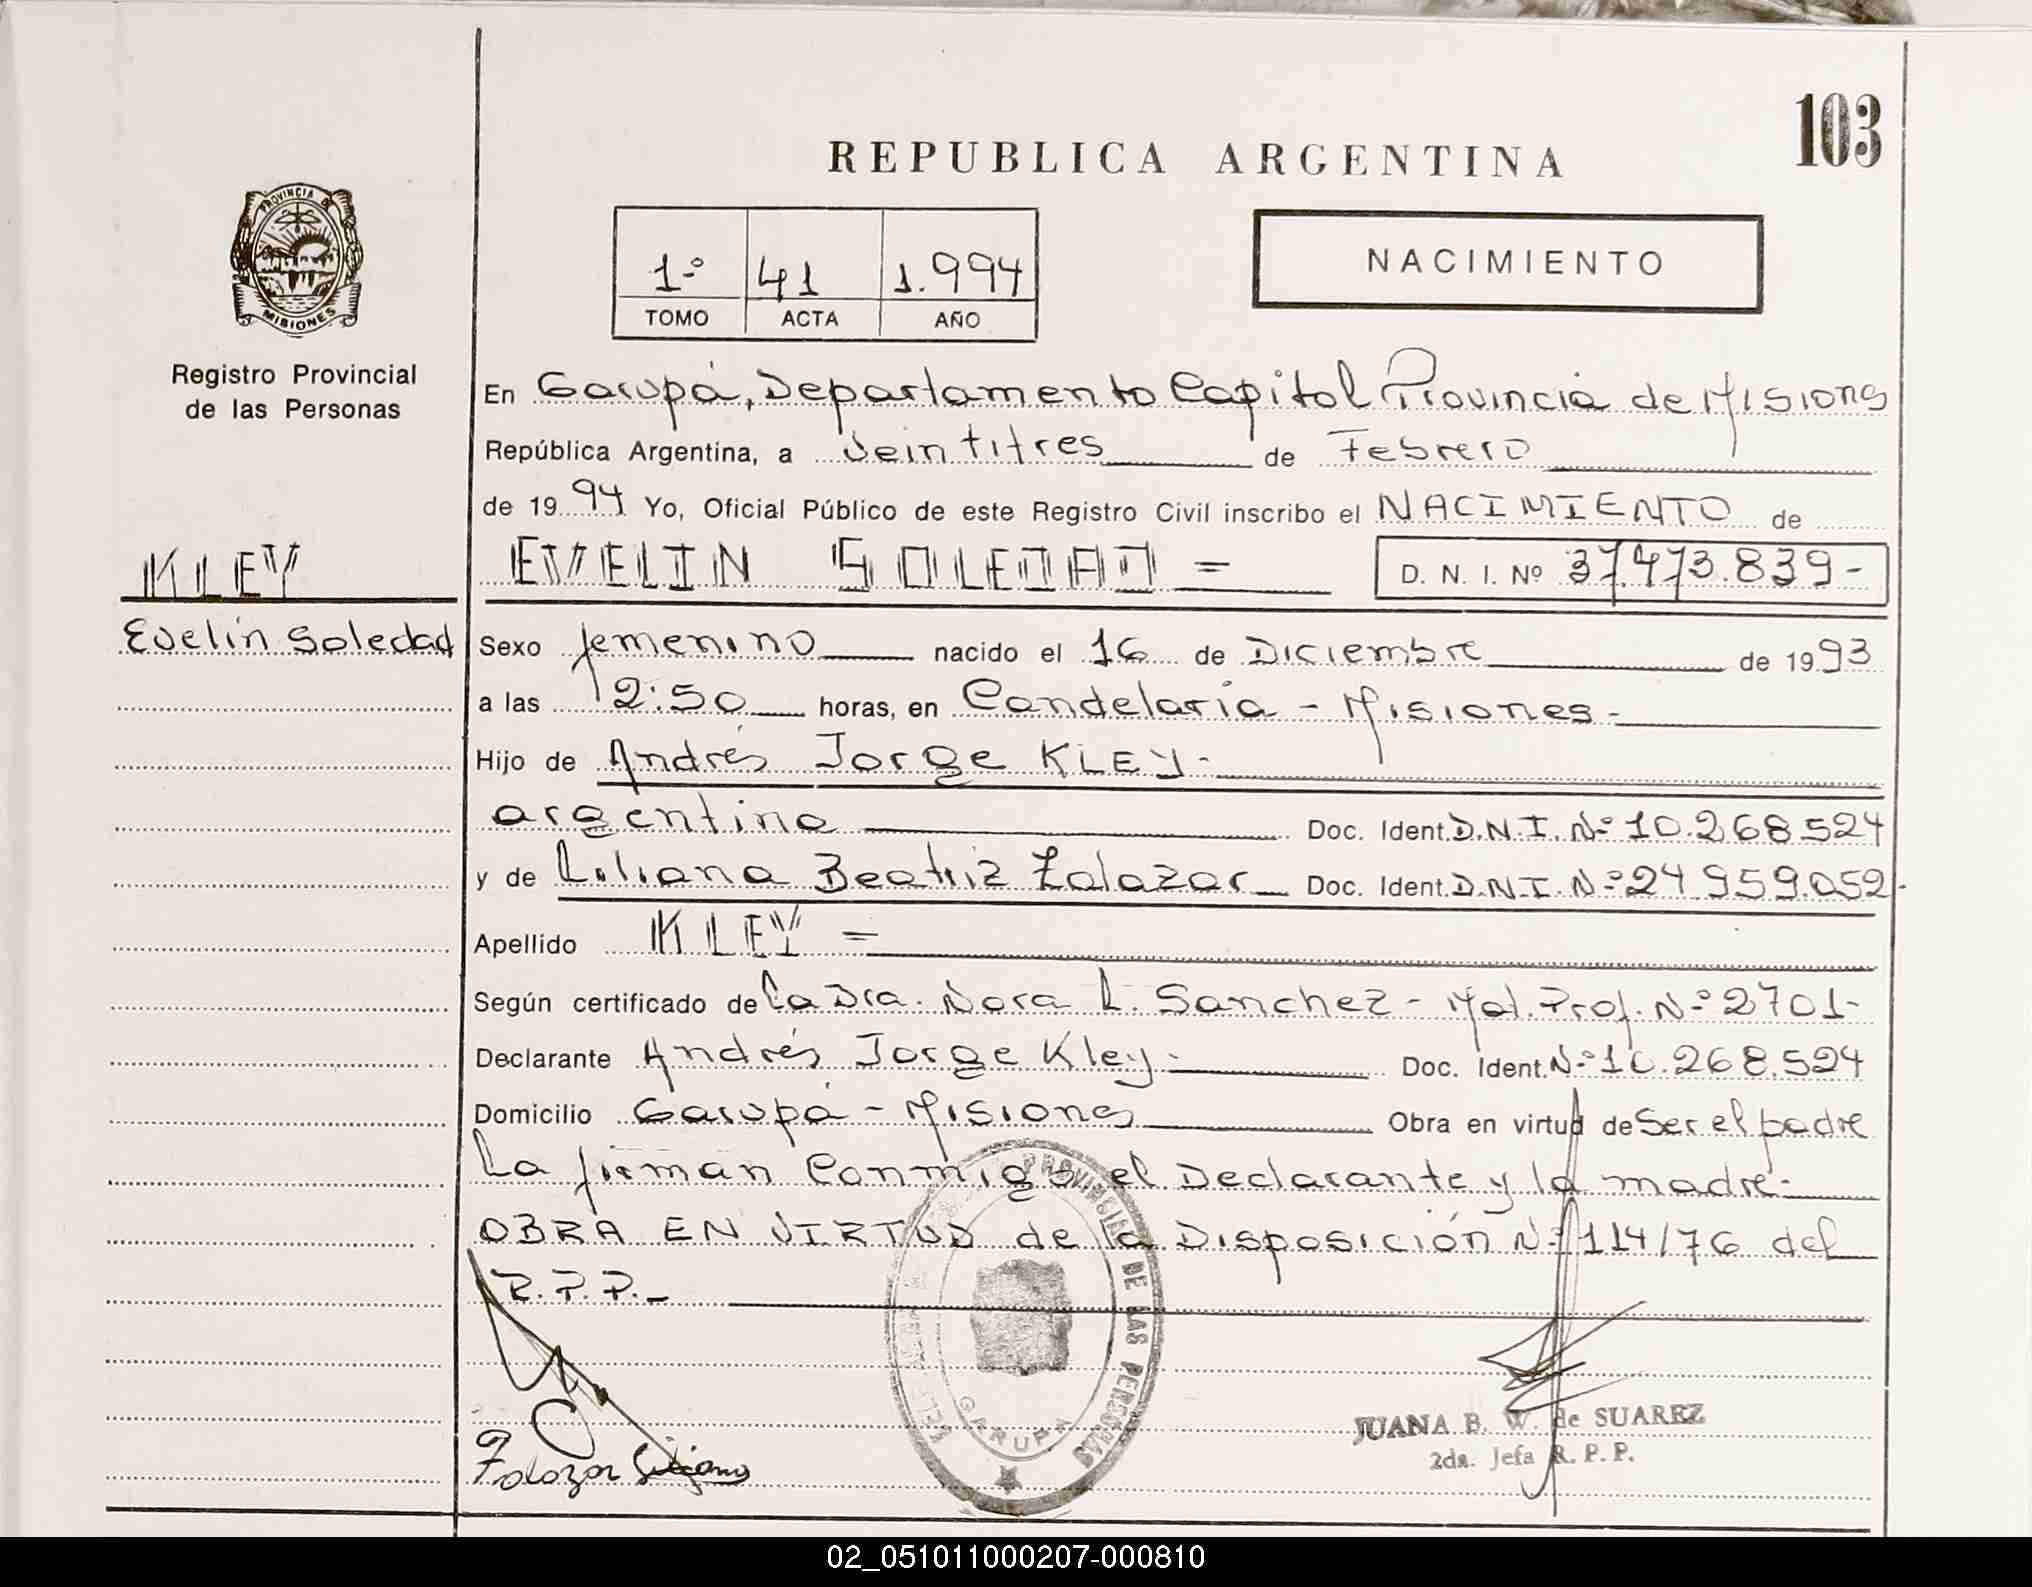 103
REPUBLICA ARGENTINA
PROVINCIA DE
MISIONES
Registro Provincial
de las Personas
1º 41 1.994
TOMO ACTA AÑO
NACIMIENTO
En Garupá, Departamento Capital Provincia de Misiones
República Argentina, a veintitres de Febrero
de 1994 Yo, Oficial Público de este Registro Civil inscribo el NACIMIENTO de
KLEY
EVELIN SOLEDAD = D. N. I. Nº 37.473.839-
Evelin Soledad
Sexo femenino nacido el 16 de Diciembre de 1993
a las 12:50 horas, en Candelaria - Misiones-
Hijo de Andrés Jorge KLEY-
argentino Doc. Ident. D.N.I. Nº 10.268.524
y de Liliana Beatriz Zalazar Doc. Ident. D.N.I. Nº 24.959.052-
Apellido KLEY =
Según certificado de La Dra. Nora L. Sanchez - Mat. Prof. Nº 2701-
Declarante Andrés Jorge Kley- Doc. Ident. Nº 10.268.524
Domicilio Garupá - Misiones Obra en virtud de Ser el padre
La firman Conmigo el Declarante y la madre-
OBRA EN VIRTUD de la Disposición Nº 114/76 del
R.P.P.-
PROVINCIAL DE LAS PERSONAS
GARUPA
JUANA B. W. de SUAREZ
2da. Jefa R. P. P.
Zalazar Liliana
02_051011000207-000810